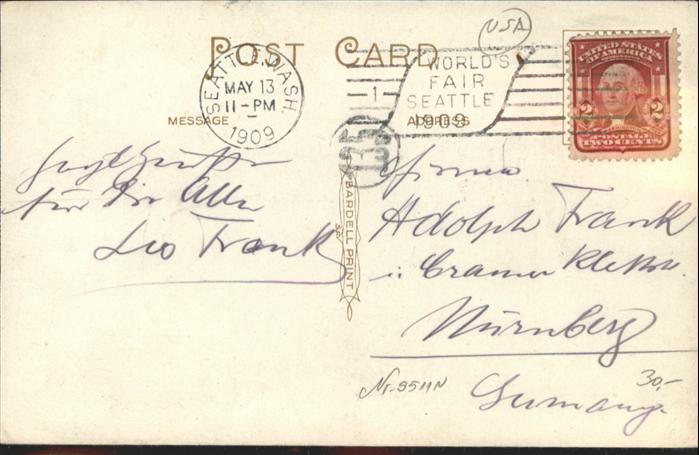 USA
POST CARD
SEATTLE, WASH.
MAY 13
11-PM
1909
1
WORLD'S
FAIR
SEATTLE
1909
UNITED STATES
OF AMERICA
2 2
POSTAGE
TWO CENTS
MESSAGE
ADDRESS
135
für Sie Alle
Leo Frank
BARDELL PRINT
S.F.
Firma
Adolph Frank
Cramer Klett
Nürnberg
Germany
Nr. 9511N
30,-